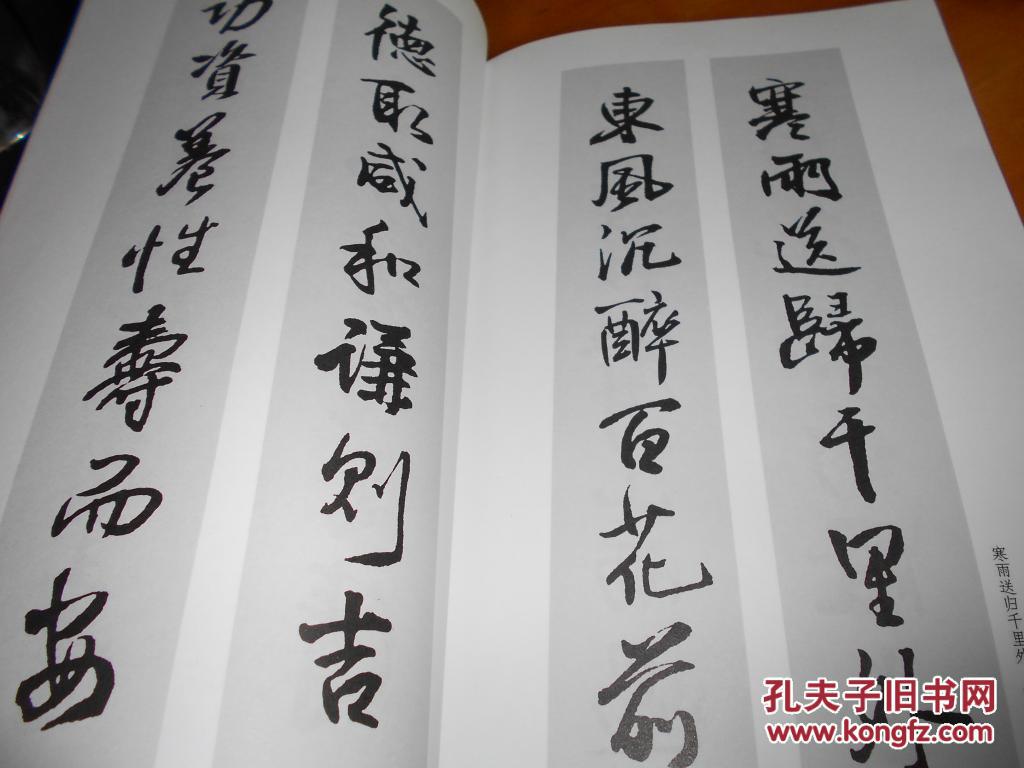 寒雨送歸千里外
東風沉醉百花前
寒雨送归千里外
德取咸和謙則吉
功資養性壽而安
孔夫子旧书网
www.kongfz.com